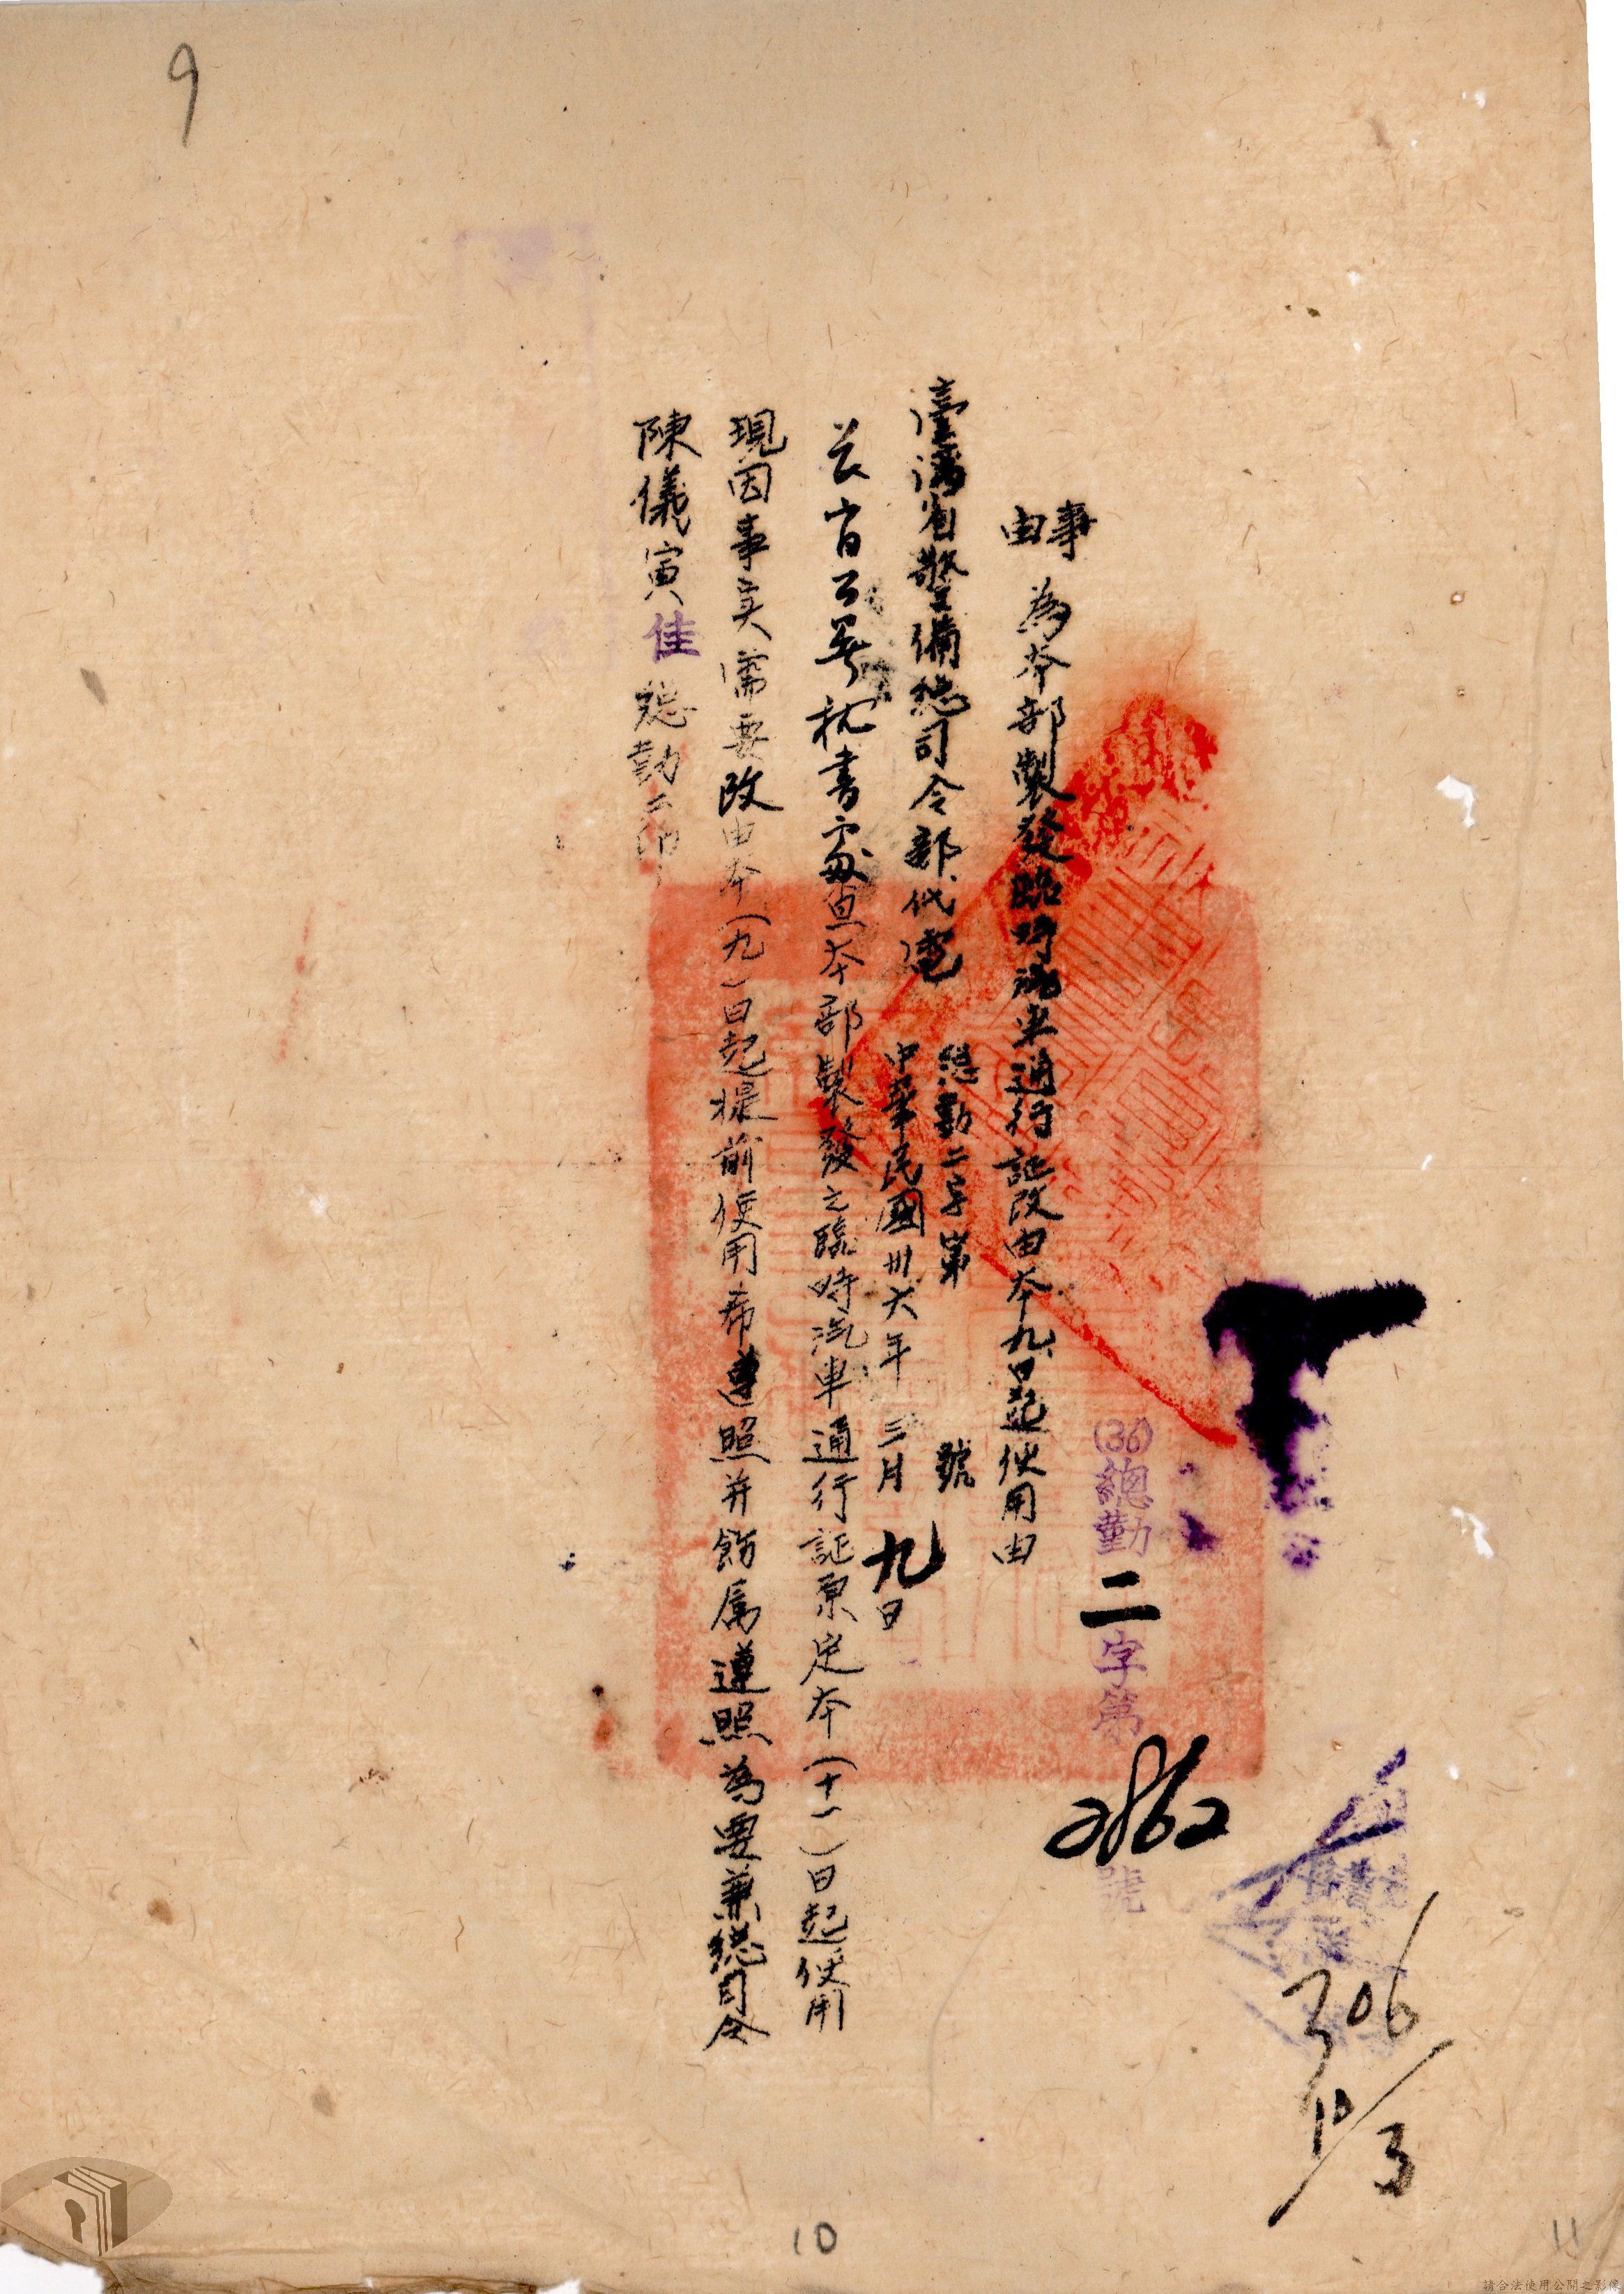 9
306
10/3
(36)總勤二字第2862號
事由
為本部製發臨時汽車通行証改由本九日起使用由
臺灣省警備總司令部代電
總勤二字第 號
中華民國卅六年三月九日
長官公署秘書處查本部製發之臨時汽車通行証原定本(十一)日起使用
現因事实需要改由本(九)日起提前使用希遵照并飭属遵照為要兼總司令
陳儀寅佳總勤二印
10
11
請合法使用公開之影像